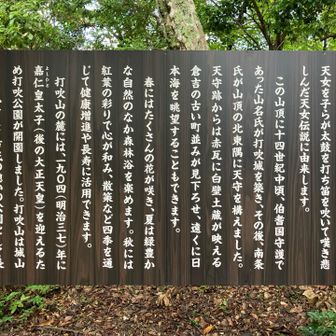 天女を子らが太鼓と打ち笛を吹いて嘆き悲
しんだ天女伝説に由来します。
この山頂に十四世紀中頃、伯耆国守護で
あった山名氏が打吹城を築き、その後、南条
氏が山頂の北東隅に天守を構えました。
天守跡からは赤瓦に白壁土蔵が映える
倉吉の古い町並みが見下ろせ、遠くに日
本海を眺望することもできます。
春にはたくさんの花が咲き、夏は緑豊か
な自然のなか森林浴を楽めます。秋には
紅葉の彩りで心が和み、散策など四季を通
じて健康増進や長寿に活用できます。
打吹山の麓には、一九〇四(明治三七)年に
嘉仁皇太子(後の大正天皇)を迎えるた
よしひと
め打吹公園が開園しました。打吹山は城山